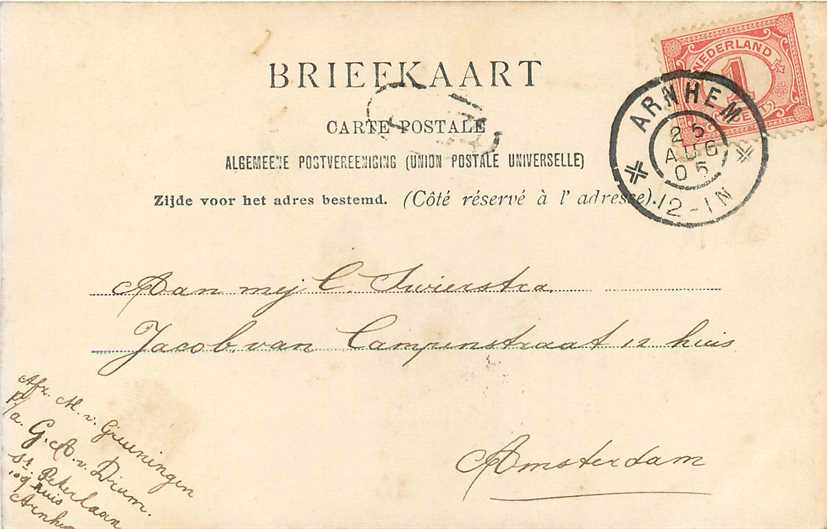 BRIEFKAART
CARTE POSTALE
ALGEMEENE POSTVEREENIGING (UNION POSTALE UNIVERSELLE)
Zijde voor het adres bestemd. (Côté réservé à l'adresse).
NEDERLAND
1
ARNHEM
25
AUG
05
12-1N
Aan mej C. Swierstra
Jacob van Campenstraat 12 huis
Amsterdam
Afz. M. v. Gruiningen
p/a. G. A. v. Dirum.
St. Peterlaan
huis
Arnhe